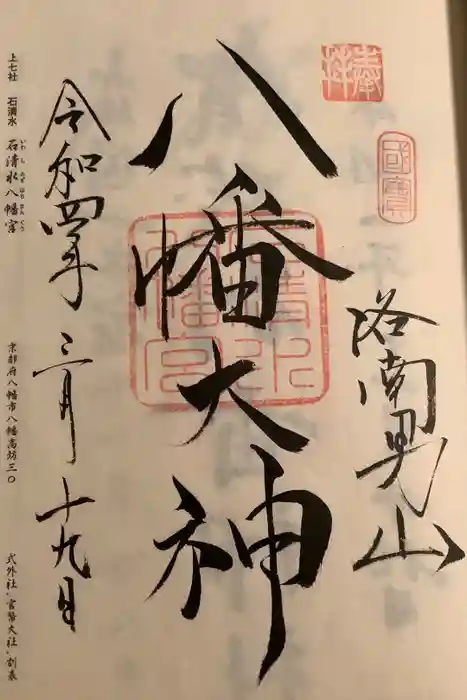 奉拝
國寶
洛南男山
八幡大神
石清水八幡宮
令和四年 三月 十九日
上七社 石清水 石清水八幡宮 京都府八幡市八幡高坊三〇 式外社・官幣大社・別表
いわしみずはちまんぐう